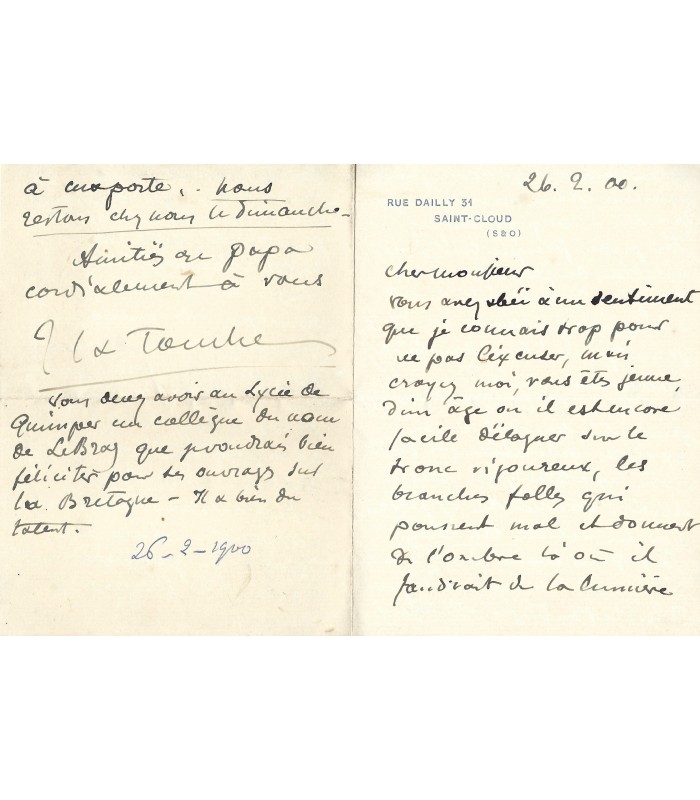 26. 2. 00.
RUE DAILLY 31
SAINT-CLOUD
(S&O)
cher monsieur
vous avez obéi à un sentiment
que je connais trop pour
ne pas l'éxcuser, mais
croyez moi, vous êtes jeune,
d'un âge où il est encore
facile d'élaguer sur le
tronc vigoureux, les
branches folles qui
poussent mal et donnent
de l'ombre là où il
faudrait de la lumière
à emporte, . nous
restons chez nous le dimanche -
Amitiés au papa
cordialement à vous
La Touche
vous devez avoir au Lycée de
Quimper un collègue du nom
de LeBraz que je voudrais bien
féliciter pour ses ouvrages sur
la Bretagne - Il a bien du
talent.
26-2-1900